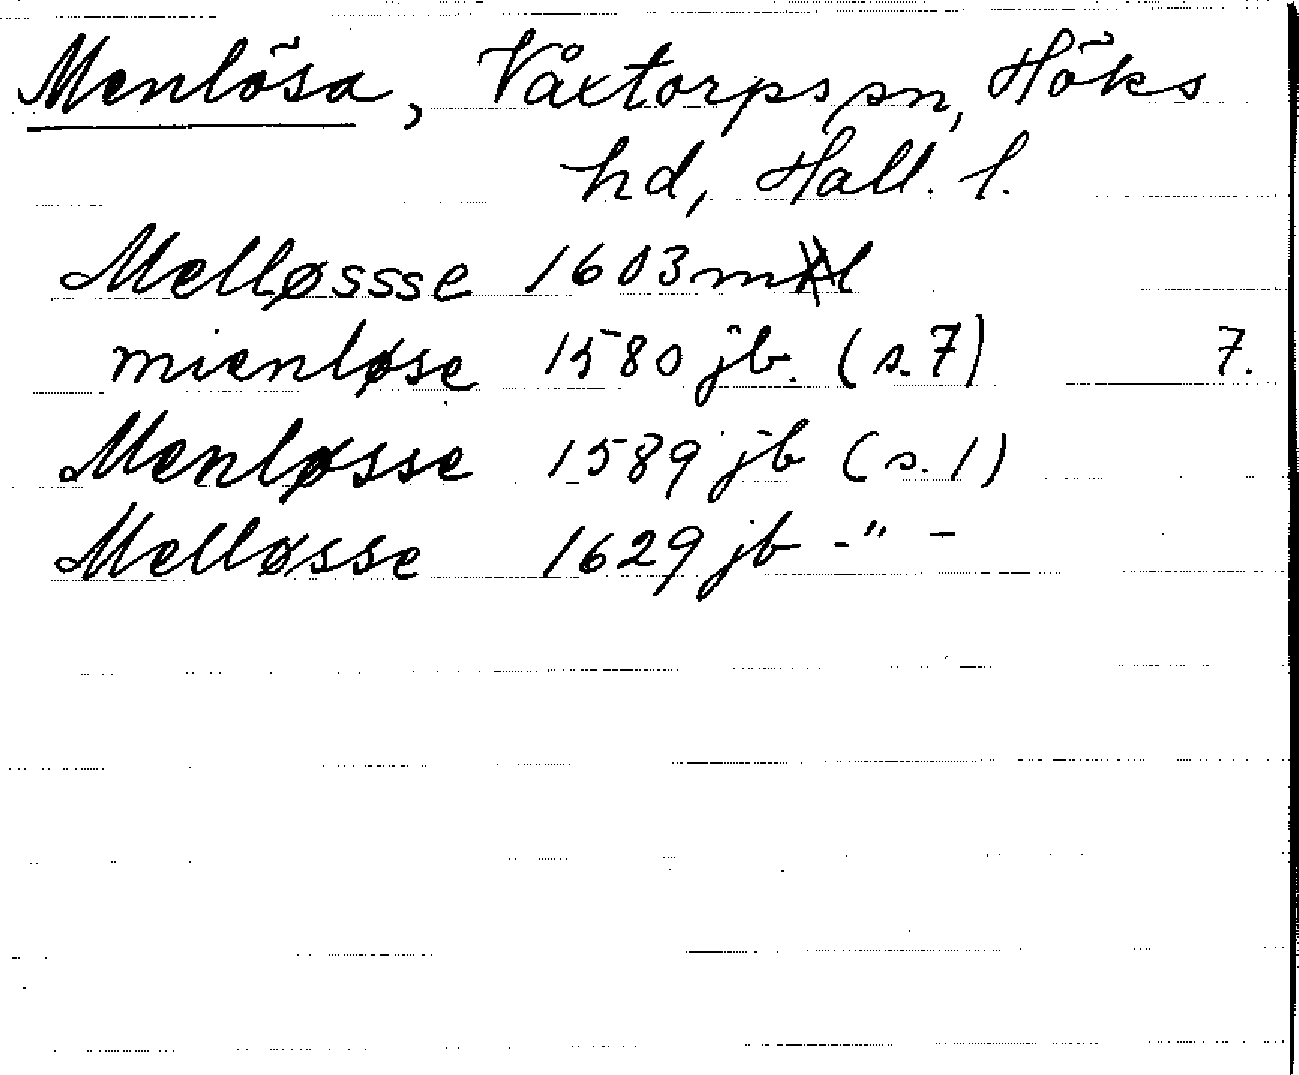 Menlösa, Våxtorps sn, Höks
hd, Hall. l.
Melløssse 1603 ml
mienløse 1580 jb. (s. 7) 7.
Menløsse 1589 jb (s. 1)
Melløsse 1629 jb -"-